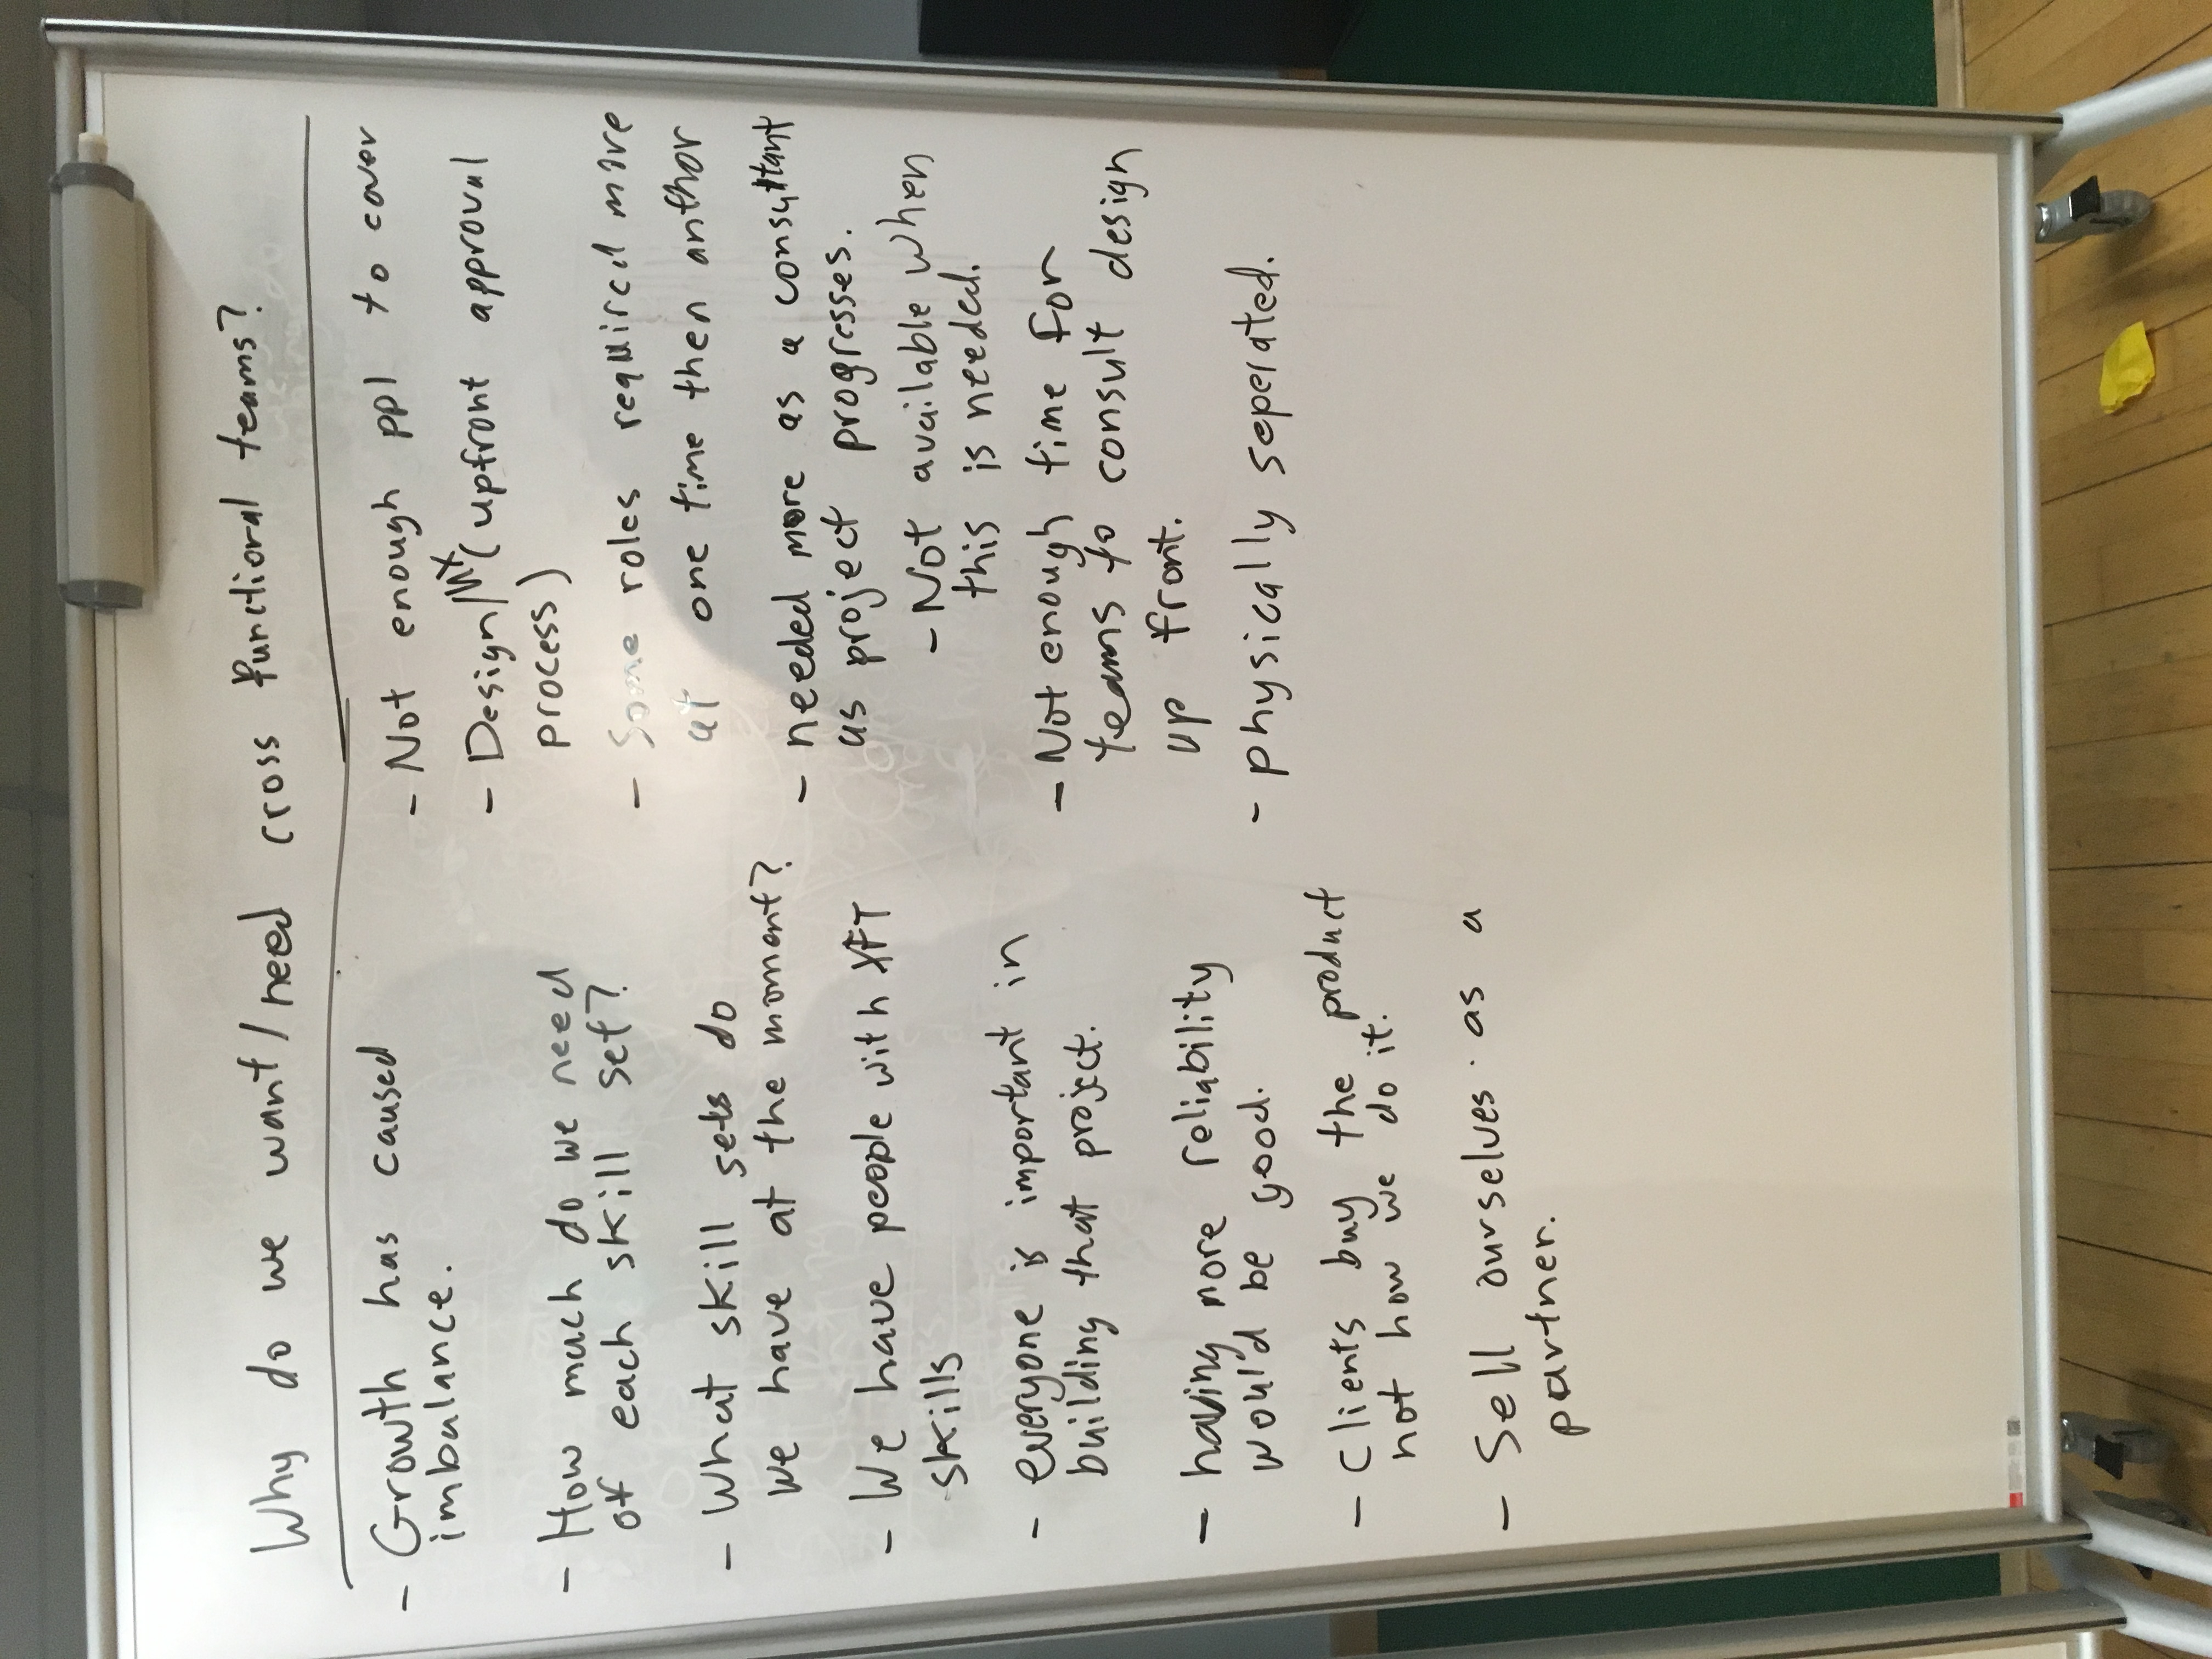 Why do we want/need cross functional teams?
- Growth has caused
imbalance.
- How much do we need
of each skill set?
- What skill sets do
we have at the moment?
- We have people with XFT
skills
- everyone is important in
building that project.
- having more reliability
would be good.
- Clients buy the product
not how we do it.
- Sell ourselves as a
partner.
- Not enough ppl to cover
- Design/UX (upfront approval
process)
- Some roles required more
at one time then anthor
- needed more as a consultant
as project progresses.
- Not available when
this is needed.
- Not enough time for
teams to consult design
up front.
- physically seperated.